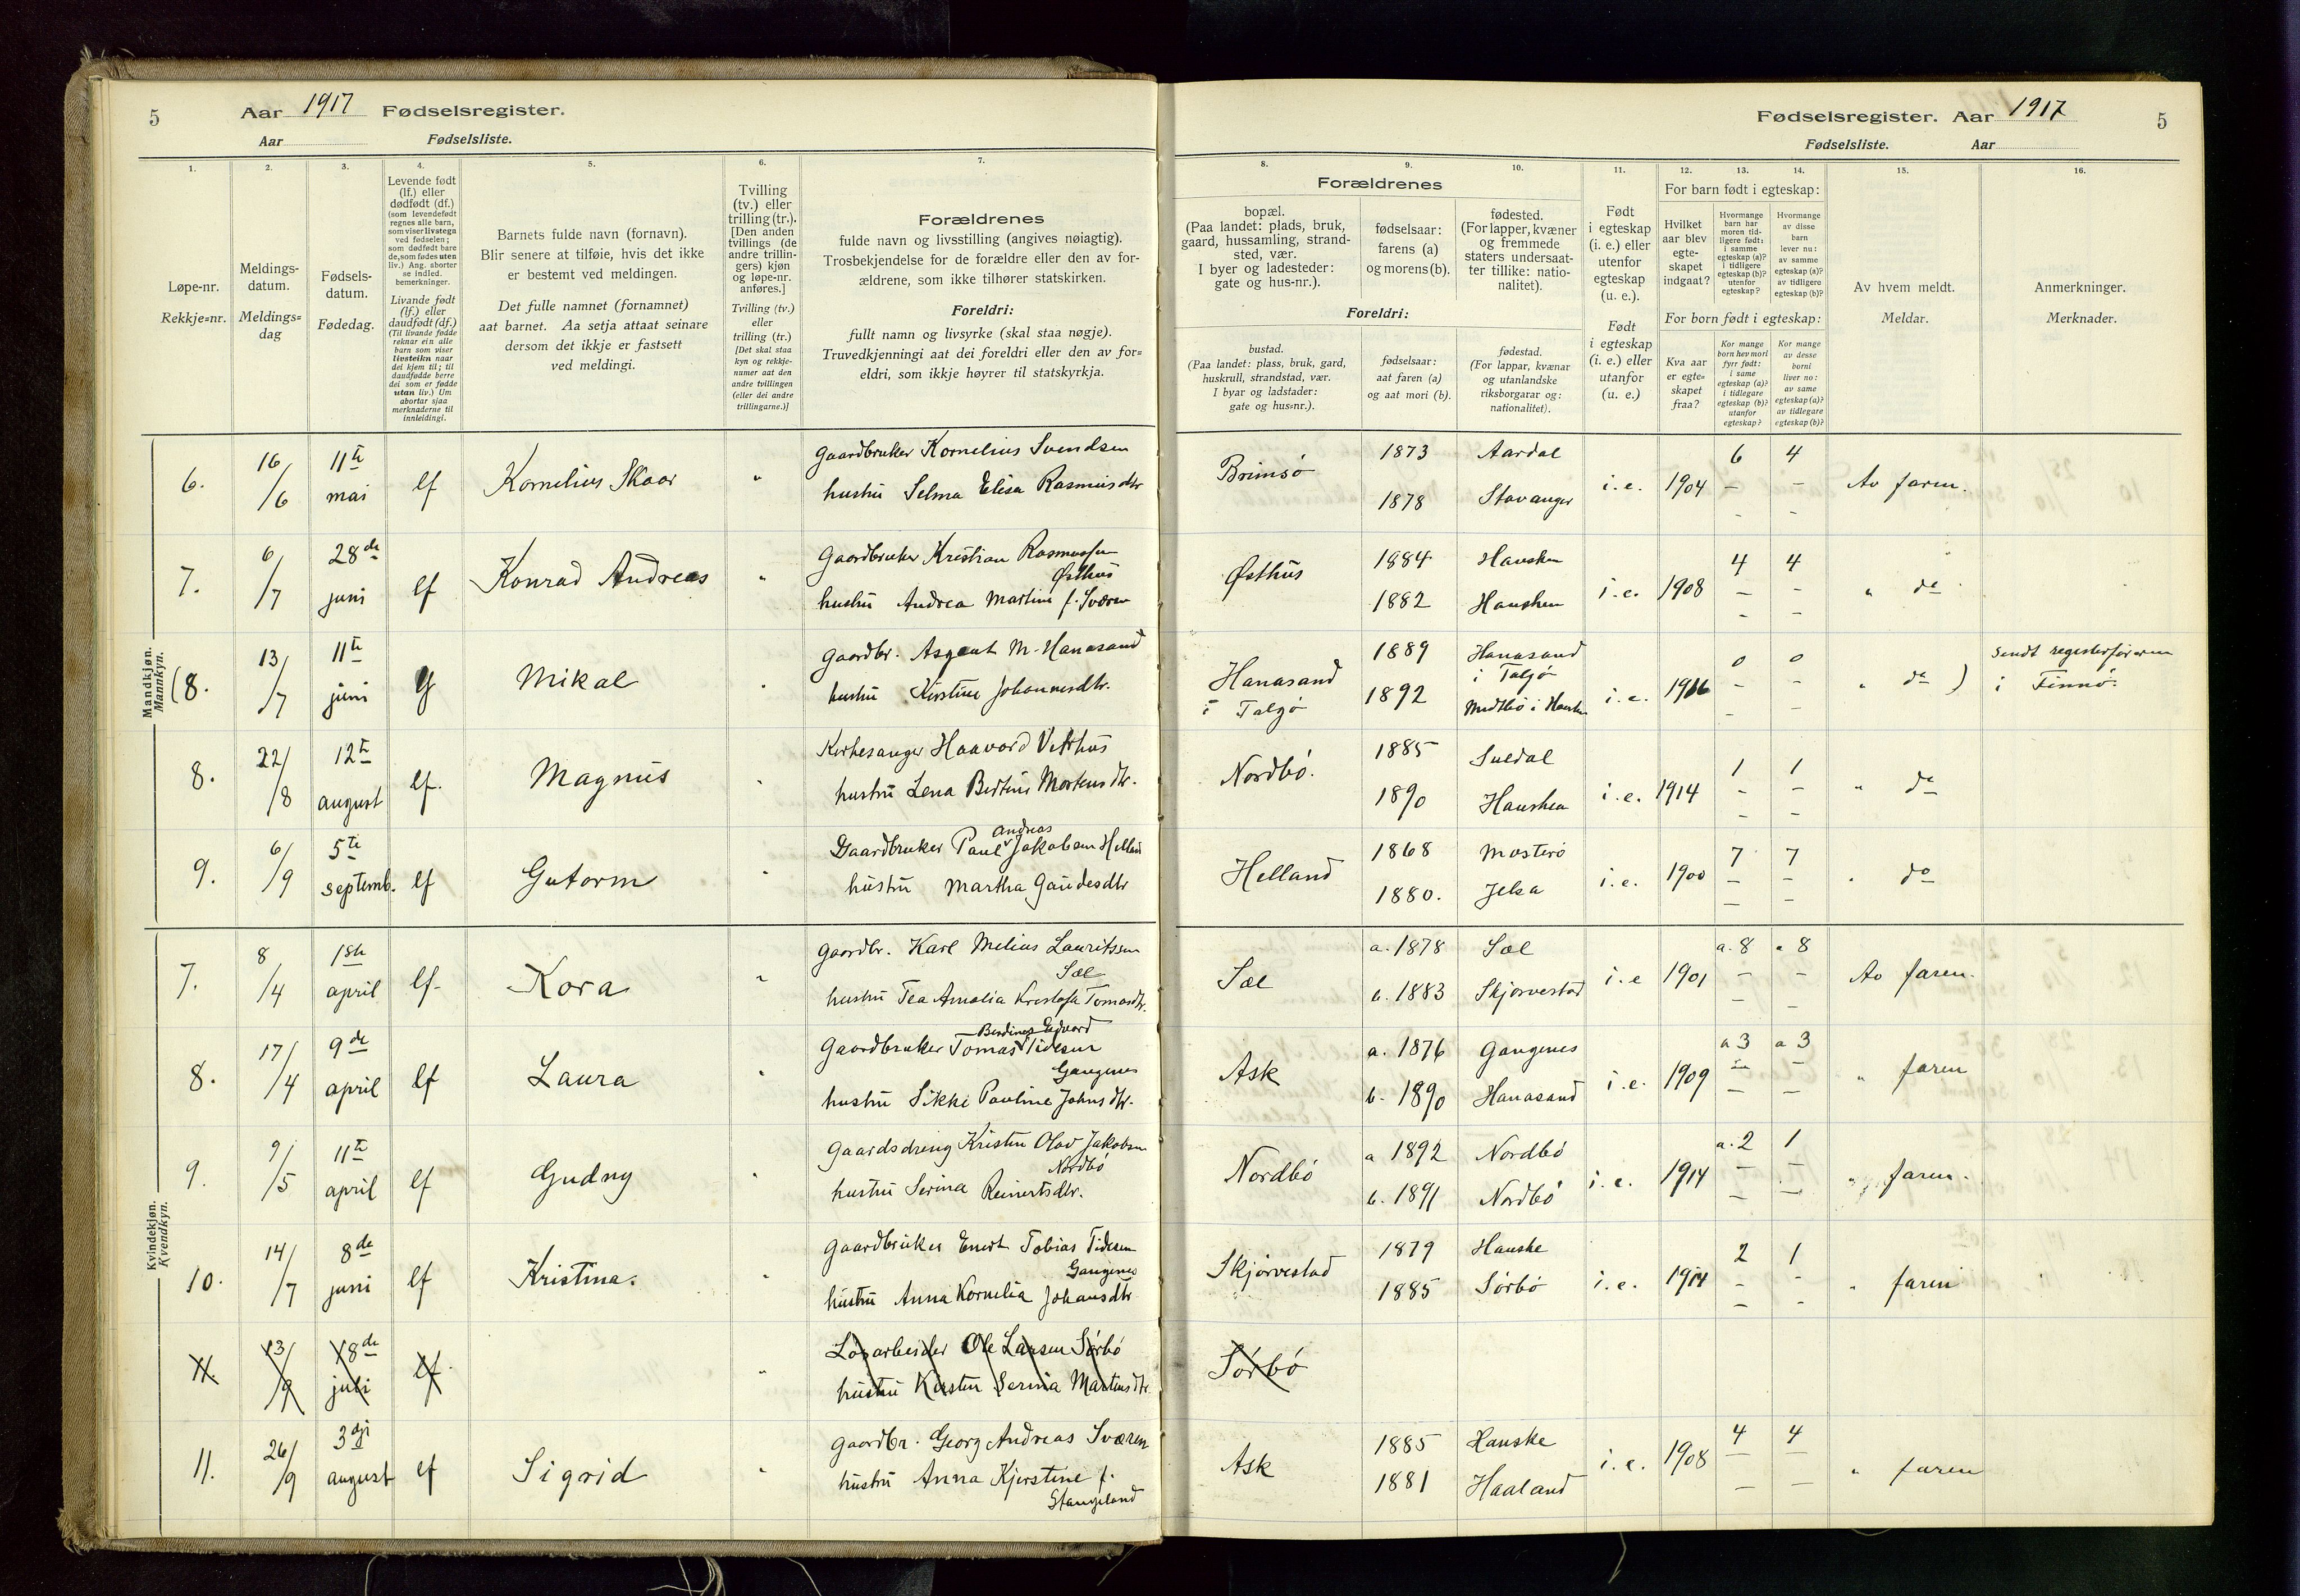 5
Aar 1917 Fødselsregister.
Aar Fødselsliste.
Fødselsregister. Aar 1917
5
Fødselsliste. Aar
1.
2.
3.
4.
5.
6.
7.
8.
9.
10.
11.
12.
13.
14.
15.
16.
Løpe-nr.
Rekkje=nr.
Meldings-
datum.
Meldings=
dag
Fødsels-
datum.
Fødedag.
Levende født
(lf.) eller
dødfødt (df.)
(som levendefødt
regnes alle barn,
som viser livstegn
ved fødselen;
som dødfødt bare
de, som fødes uten
liv.) Ang. aborter
se indled.
bemerkninger.
Livande født
(lf.) eller
daudfødt (df.)
(Til livande fødde
reknar ein alle
barn som viser
livsteikn naar
dei kjem til; til
daudfødde berre
dei som er fødde
utan liv.) Um
abortar sjaa
merknaderne til
innleidingi.
Barnets fulde navn (fornavn).
Blir senere at tilføie, hvis det ikke
er bestemt ved meldingen.
Det fulle namnet (fornamnet)
aat barnet. Aa setja attaat seinare
dersom det ikkje er fastsett
ved meldingi.
Tvilling
(tv.) eller
trilling (tr.).
[Den anden
tvillings (de
andre trillin-
gers) kjøn
og løpe-nr.
anføres.]
Tvilling (tv.)
eller
trilling (tr.)
[Det skal staa
kyn og rekkje-
numer aat den
andre tvillingen
(eller dei andre
trillingarne.)]
Forældrenes
fulde navn og livsstilling (angives nøiagtig).
Trosbekjendelse for de forældre eller den av for-
ældrene, som ikke tilhører statskirken.
Foreldri:
fullt namn og livsyrke (skal staa nøgje).
Truvedkjenningi aat dei foreldri eller den av for=
eldri, som ikkje høyrer til statskyrkja.
Forældrenes
bopæl.
(Paa landet: plads, bruk,
gaard, hussamling, strand-
sted, vær.
I byer og ladesteder:
gate og hus-nr.).
fødselsaar:
farens (a)
og morens (b).
fødested.
(For lapper, kvæner
og fremmede
staters undersaat-
ter tillike: natio-
nalitet).
Foreldri:
bustad.
(Paa landet: plass, bruk, gard,
huskrull, strandstad, vær.
I byar og ladstader:
gate og hus=nr.).
fødselsaar:
aat faren (a)
og aat mori (b).
fødestad.
(For lappar, kvænar
og utanlandske
riksborgarar og:
nationalitet).
Født
i egteskap
(i. e.) eller
utenfor
egteskap
(u. e.).
Født
i egteskap
(i. e.) eller
utanfor
(u. e.)
For barn født i egteskap:
Hvilket
aar blev
egte-
skapet
indgaat?
Hvormange
barn har
moren tid-
ligere født:
i samme
egteskap (a)?
i tidligere
egteskap (b)?
utenfor
egteskap?
Hvormange
av disse
barn
lever nu:
av samme
egteskap (a)?
av tidligere
egteskap (b)?
For born født i egteskap:
Kva aar
er egte=
skapet
fraa?
Kor mange
born hev mori
fyrr født:
i same
egteskap (a)?
i tidlegare
egteskap (b)?
utanfor
egteskap?
Kor mange
av desse
borni
liver no:
av same
egteskap (a)?
av tidlegare
egteskap (b)?
Av hvem meldt.
Meldar.
Anmerkninger.
Merknader.
Mandkjøn.
Mannkyn.
6. 16/6 11te mai lf Kornelius Skaar " Gaardbruker Kornelius Svendsen
hustru Selma Elisa Rasmusdtr
Brimsö 1873 Aardal i.e. 1904 6 4 Av faren.
1878 Stavanger – –
7. 6/7 28de juni lf Konrad Andreas " Gaardbruker Kristian Rasmussen
Østhus
hustru Andrea Martine f. Sværen
Østhus 1884 Hausken i.e. 1908 4 4 " do
1882 Hausken – –
(8. 13/7 11te juni lf Mikal " Gaardbr. Asgaut M. Hanasand
hustru Kirstine Johannesdtr.
Hanasand i Talgö 1889 Hanasand i Talgö i.e. 1916 0 0 " do ) Sendt registerföreren
1892 Medtbö i Hausken – – i Finnö.
8. 22/8 12te august lf. Magnus " Kirkesanger Haavard Vetrhus
hustru Lena Bertine Mortensdtr.
Nordbö. 1885 Suldal i.e. 1914 1 1 " do
1890 Hausken – –
9. 6/9 5te septemb. lf Gutorm " Gaardbruker Paul Andreas Jakobsen Helland
hustru Martha Gaudesdtr
Helland 1868 Mosterö i.e. 1900 7 7 " do
1880. Jelsa – –
Kvindekjøn.
Kvendkyn.
7. 8/4 1ste april lf. Kora " Gaardbr. Karl Melius Lauritssen
Sæl
hustru Tea Amalia Kristofa Tomasdtr.
Sæl a. 1878 Sæl i.e 1901 a. 8 a 8 Av faren.
b. 1883 Skjørvestad – –
8. 17/4 9de april lf Laura " Gaardbruker Tomas Berdines Edvard Tidesen
Gangenes
hustru Sikke Pauline Johnsdtr.
Ask a. 1876 Gangenes i.e. 1909 a 3 a 3 " faren
b. 1890 Hanasand – –
9. 9/5 11te april lf Gudny " Gaardsdreng Kristen Olav Jakobsen
Nordbö
hustru Serina Reinertsdtr.
Nordbö a 1892 Nordbö i.e. 1914 a. 2 1 " faren.
b. 1891 Nordbö – –
10. 14/7 8de juni lf Kristina. " Gaardbruker Enert Tobias Tidesen
Gangenes
hustru Anna Kornelia Johansdtr
Skjørvestad 1879 Hauske i.e. 1914 2 1 " faren
1885 Sörbö – –
11. 13/9 18de juli lf. " Løsarbeider Ole Larsen Sörbö
hustru Kirsten Serina Martinsdtr.
Sörbö
11. 26/9 3dje august lf Sigrid " Gaardbr. Georg Andreas Sværen
hustru Anna Kjerstine f.
Stangeland
Ask 1885 Hauske i.e. 1908 4 4 " faren
1881 Haaland – –